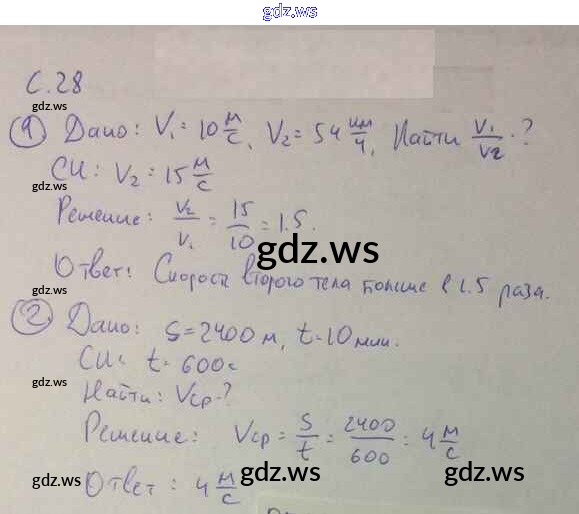 gdz.ws
С.28
gdz.ws
① Дано: V₁= 10 м/с, V₂= 54 км/ч, Найти V₁/V₂ ?
gdz.ws
СИ: V₂ = 15 м/с
gdz.ws
Решение: V₂/V₁ = 15/10 = 1.5.
gdz.ws
Ответ: Скорость второго тела больше в 1.5 раза.
gdz.ws
② Дано: S=2400 м, t=10 мин.
СИ: t= 600с
gdz.ws
Найти: Vср-?
Решение: Vср = S/t = 2400/600 = 4 м/с
gdz.ws
Ответ: 4 м/с
gdz.ws gdz.ws gdz.ws